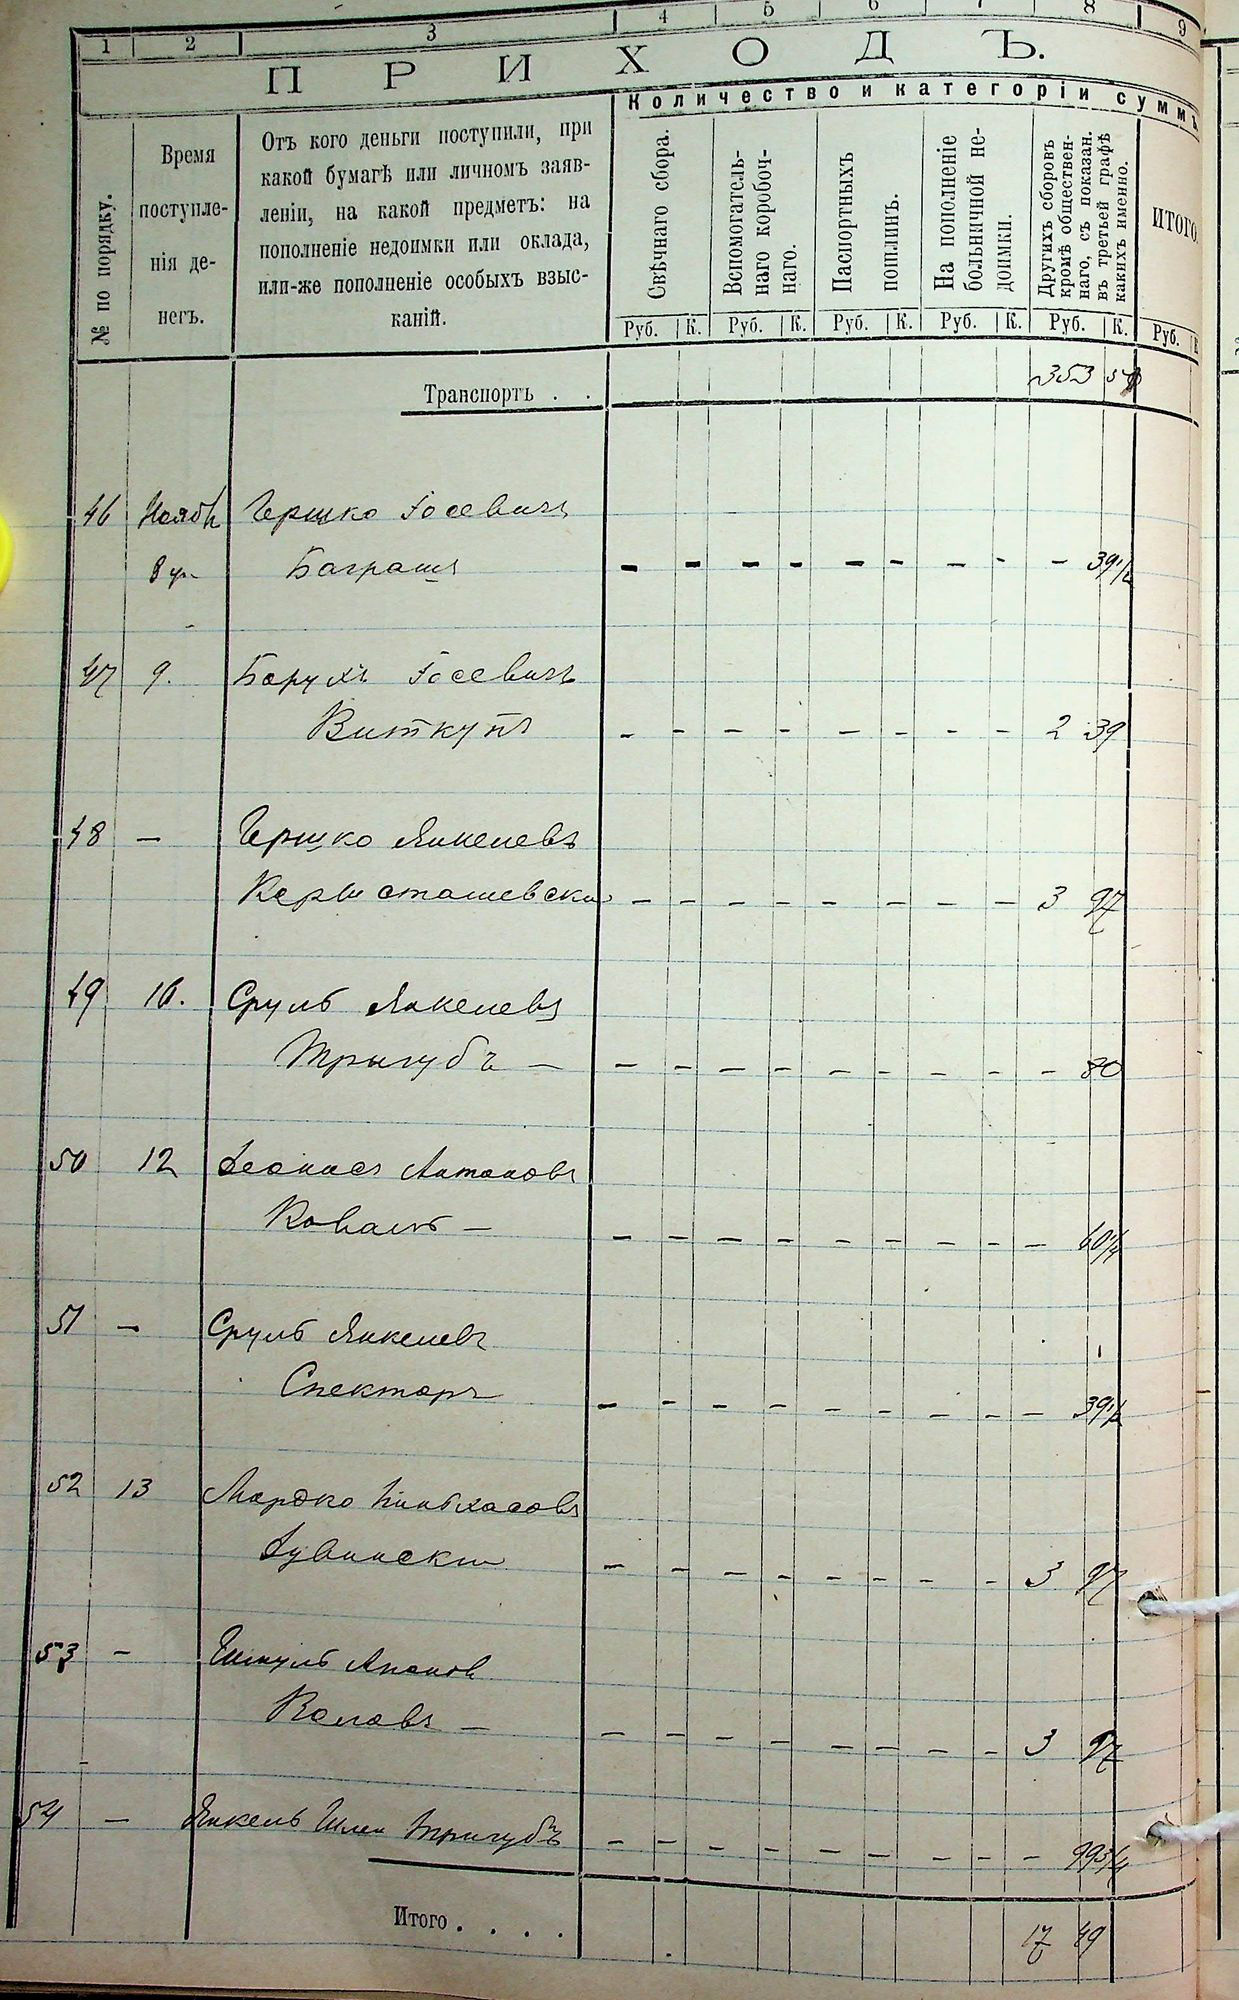 1 2 3 4 5 6 7 8 9
ПРИХОДЪ.
Количество и категорiи суммъ
№ по порядку.
Время
поступле-
нiя де-
негъ.
Отъ кого деньги поступили, при
какой бумагѣ или личномъ заяв-
ленiи, на какой предметъ: на
пополненiе недоимки или оклада,
или-же пополненiе особыхъ взыс-
канiй.
Свѣчнаго сбора.
Вспомогатель-
наго коробоч-
наго.
Паспортныхъ
пошлинъ.
На пополненiе
больничной не-
доимки.
Другихъ сборовъ
кромѣ обществен-
наго, съ показан.
въ третьей графѣ
какихъ именно.
ИТОГО.
Руб. К. Руб. К. Руб. К. Руб. К. Руб. К. Руб.
Транспортъ . . 353
46 Нояб Гершко Iосевичъ
8 Баграшъ - - - - - - - - - 39 1/2
47 9. Борухъ Iосевичъ
Виткупъ - - - - - - - - 2 39
48 - Гершко Янкелевъ
- - - - - - - - 3 97
49 10. Сруль Янкелевъ
Тригубъ - - - - - - - - - - 80
50 12 Антоновъ
Коваль - - - - - - - - - - 60 1/4
51 - Сруль Янкелевъ
Спекторъ - - - - - - - - - 39 1/2
52 13 Мордко Пинхасовъ
- - - - - - - - 3 97
53 -
- - - - - - - - - 3 97
54 - Янкель Шлем Тригубъ - - - - - - - - - 99 3/4
Итого . . . . 17 49